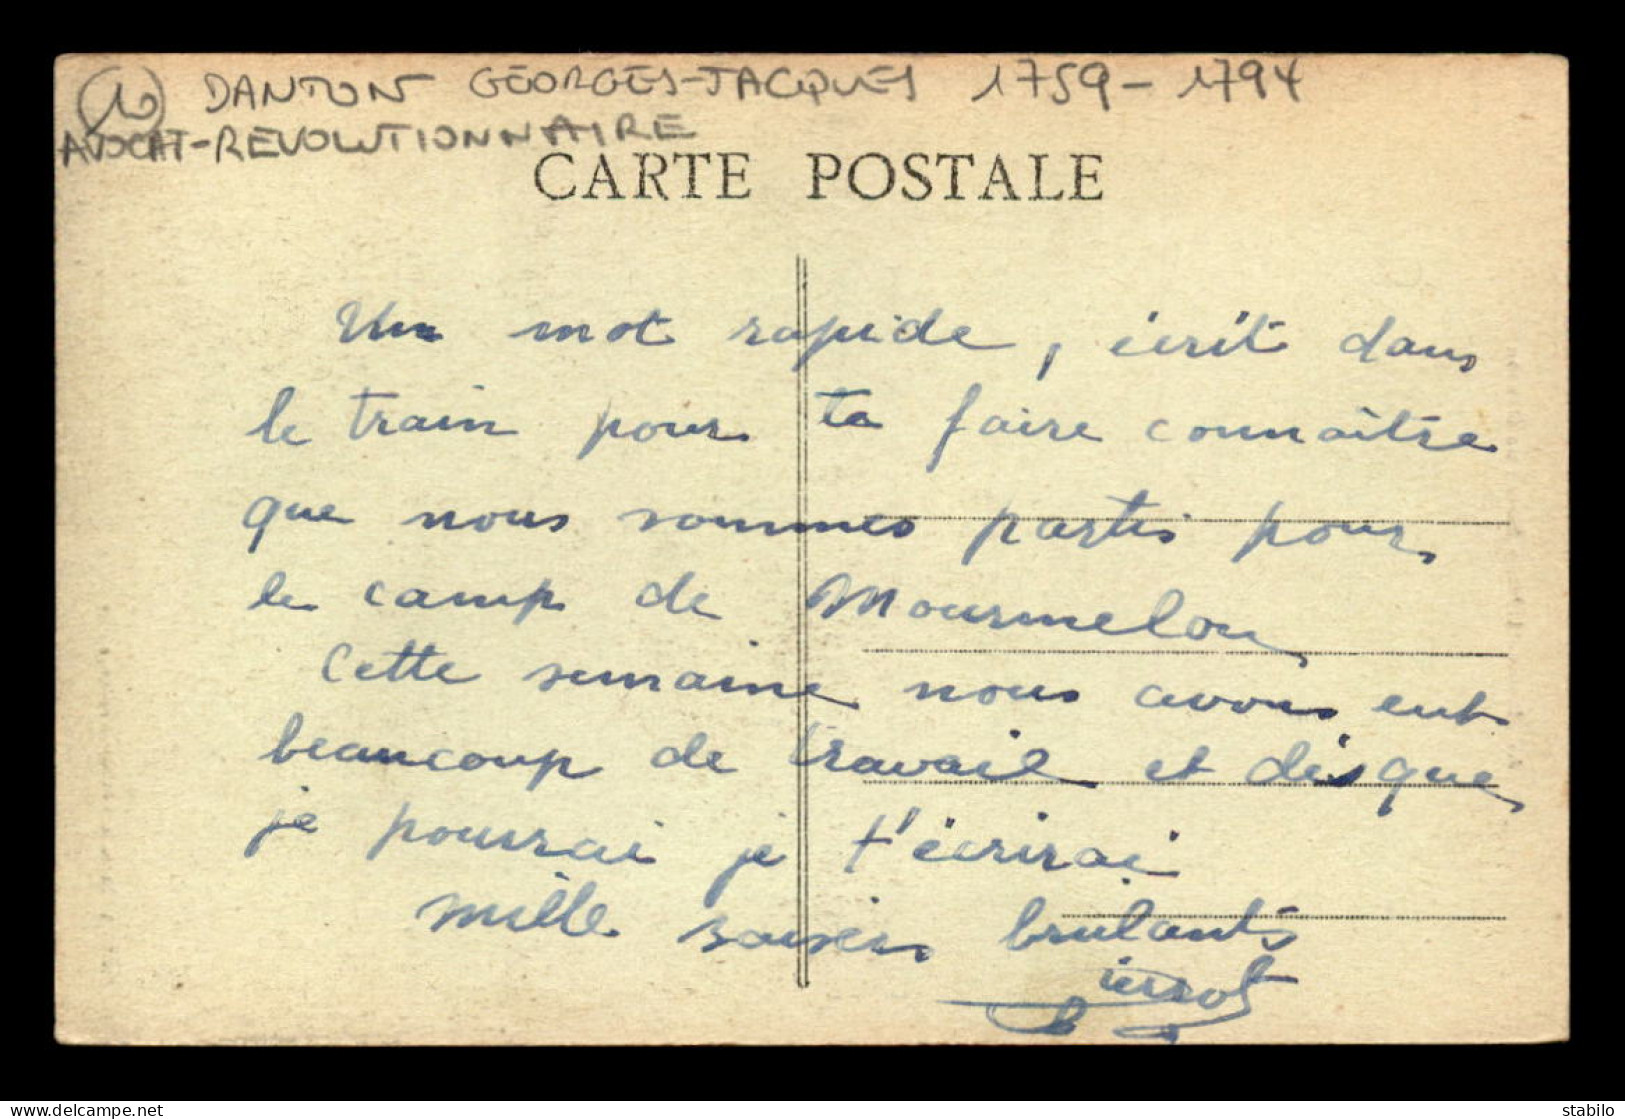 10 DANTON GEORGES-JACQUES 1759-1794
AVOCAT-REVOLUTIONNAIRE
CARTE POSTALE
Un mot rapide, écrit dans
le train pour te faire connaître
que nous sommes partis pour
le camp de Mourmelon
Cette semaine nous avons eut
beaucoup de travail et dès que
je pourrai je t'écrirai
Mille baisers brulants
delcampe.net
stabilo